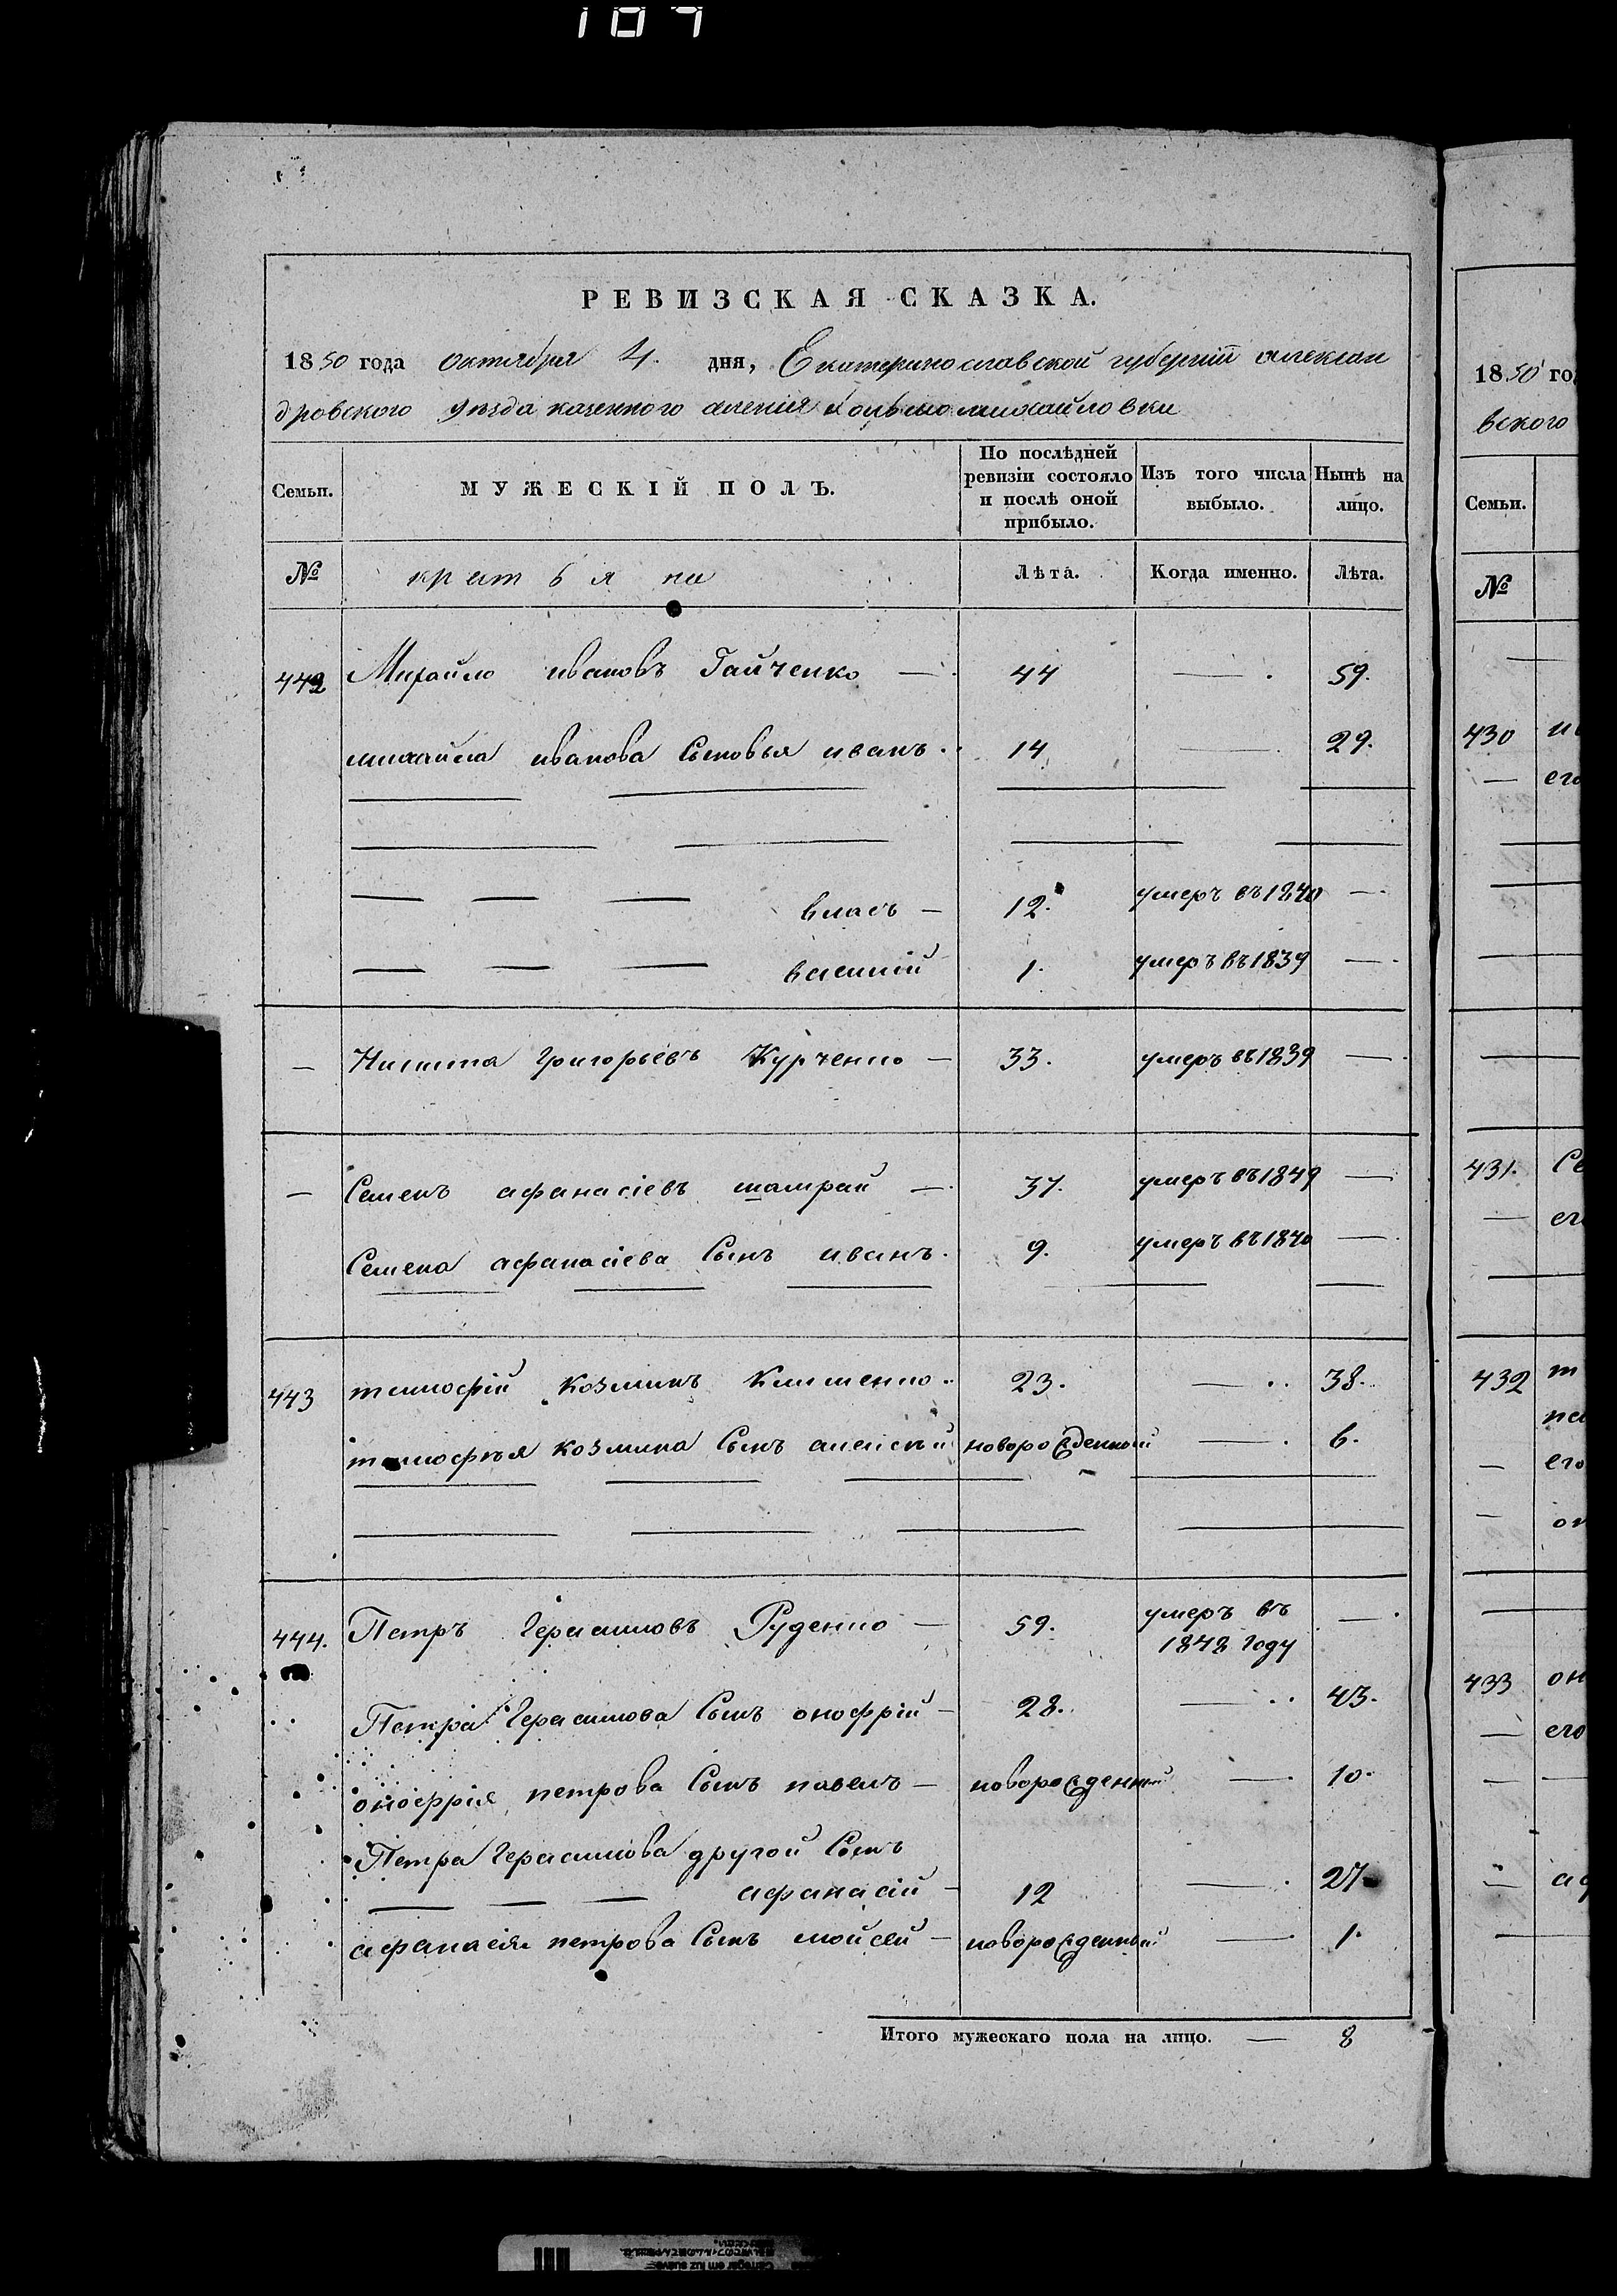 107
РЕВИЗСКАЯ СКАЗКА.
1850 года октября 4. дня, Екатеринославской губернiи алексан
дровского уѣзда казенного селенiя михайловки
Семьи.
МУЖЕСКIЙ ПОЛЪ.
По послѣдней ревизiи состояло и послѣ оной прибыло.
Изъ того числа выбыло.
Нынѣ на лицо.
№ крестьяне Лѣта. Когда именно. Лѣта.
442 Михайло ивановъ Гайченко — 44 — 59.
михайла иванова Сыновья иванъ. 14 — 29.
власъ — 12. умеръ въ 1840 —
василiй 1. умеръ въ 1839 —
— Никита Григорьевъ Курченко — 33. умеръ въ 1839 —
— Семенъ афанасiевъ шамрай — 37. умеръ въ 1849 —
Семена афанасiева Сынъ иванъ. 9. умеръ въ 1840 —
443 тимофiй козминъ Клименко. 23. — 38.
тимофѣя козмина Сынъ алексѣй новорожденный — 6.
444. Петръ Герасимовъ Руденко — 59. умеръ въ 1848 году —
Петра Герасимова Сынъ онофрiй — 28. — 43.
онофрiя петрова Сынъ павелъ — новорожденный — 10.
Петра Герасимова другой Сынъ
афанасiй — 12 — 27
афанасiя петрова Сынъ мойсей — новорожденный — 1.
Итого мужескаго пола на лицо. — 8
1850 го
вского
Семьи.
№
430
его
431. Се
его
432 т
его
433 он
его